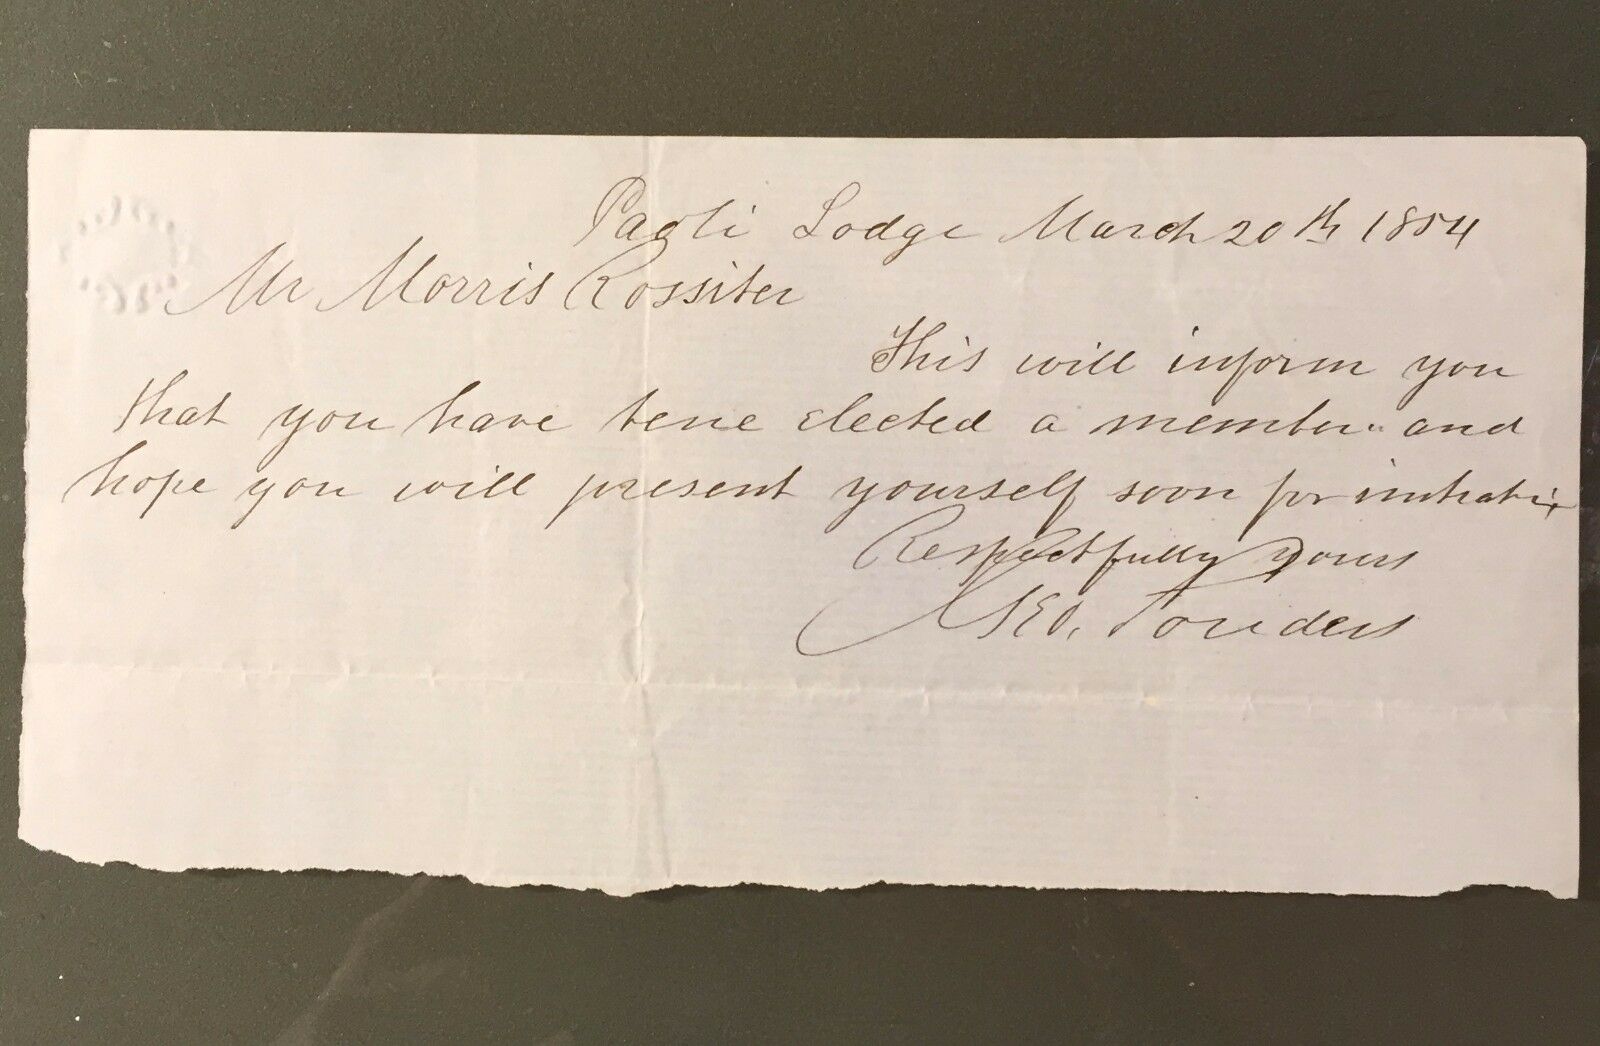 Paoli Lodge March 20th 1854
Mr Morris Rossiter
This will inform you
that you have bene elected a member and
hope you will present yourself soon for
Respectfully yours
Geo.